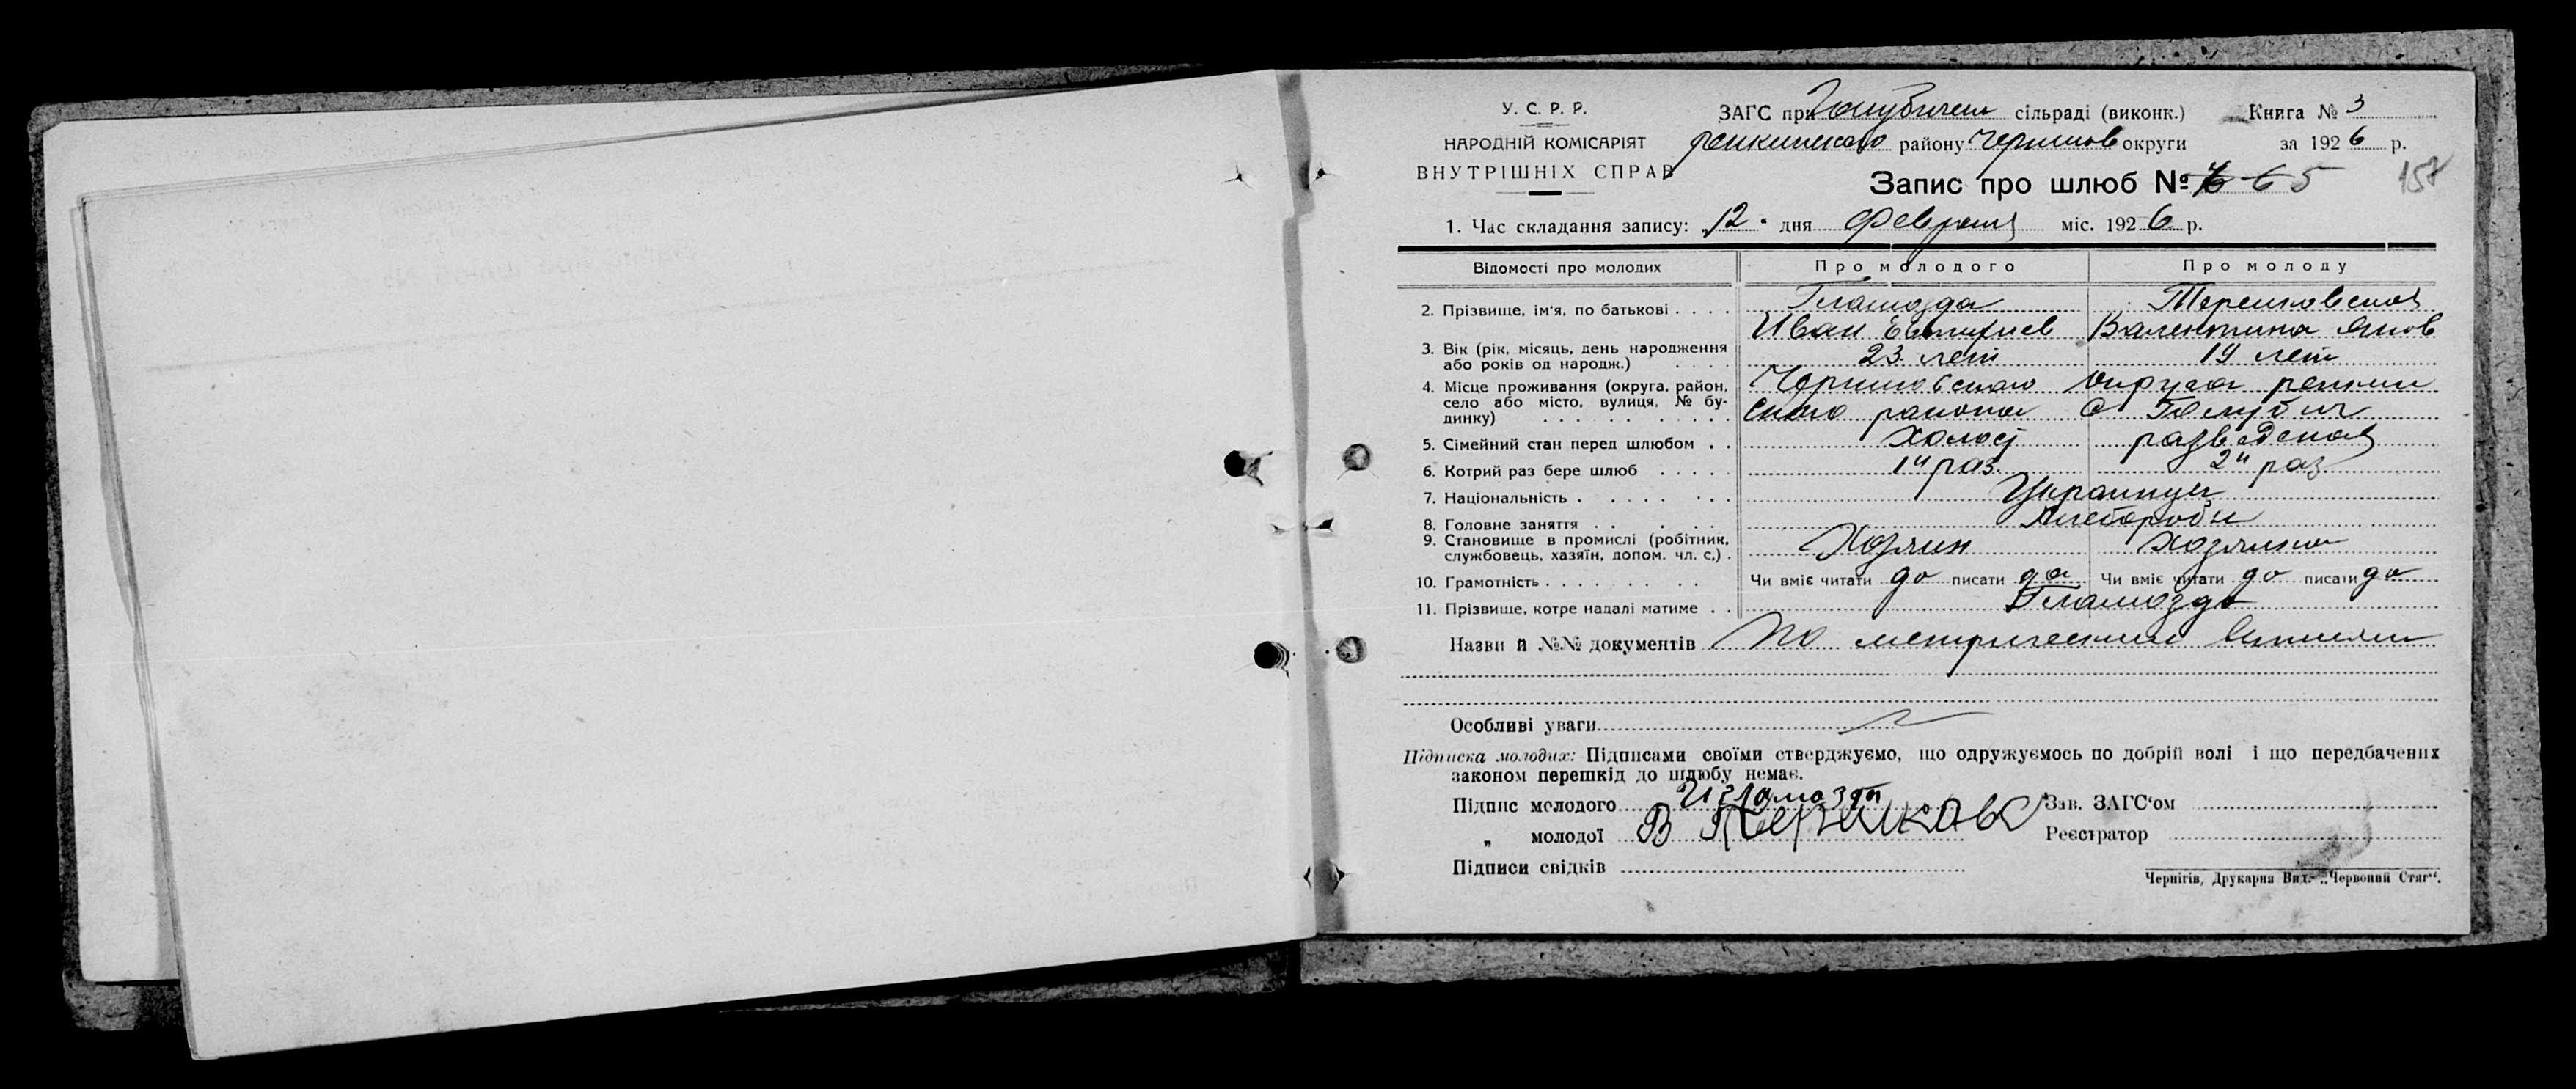 У. С. Р. Р.
НАРОДНІЙ КОМІСАРІЯТ
ВНУТРІШНІХ СПРАВ
ЗАГС при сільраді (виконк.) Книга № 3
району Чернигов округи за 1926 р.
Запис про шлюб № 65
157
1. Час складання запису: „12" дня Февраля міс. 1926 р.
Відомості про молодих Про молодого Про молоду
2. Прізвище, ім'я, по батькові . . . . Гламазда Терешковская
Иван Валентина Яков
3. Вік (рік, місяць, день народження
або років од народж.) . . . . 23 лет 19 лет
4. Місце проживання (округа, район, Черниговского округа репкин
село або місто, вулиця, № бу- ского района С Голубич
динку) . . . . . . . . . .
5. Сімейний стан перед шлюбом . . Холост разведеная
6. Котрий раз бере шлюб . . . . . 1й раз 2й раз
7. Національність . . . . . . . . Украинцы
8. Головне заняття . . . . . .
9. Становище в промислі (робітник,
службовець, хазяїн, допом. чл. с.) . Хозяин Хозяика
10. Грамотність . . . . . . . . Чи вміє читати да писати да Чи вміє читати да писати да
11. Прізвище, котре надалі матиме . . Гламазда
Назви й №№ документів По метрическим
Особливі уваги
Підписка молодих: Підписами своїми стверджуємо, що одружуємось по добрій волі і що передбачених
законом перешкід до шлюбу немає.
Підпис молодого И Гламазда Зав. ЗАГС'ом
„ молодої В Терешкова Реєстратор
Підписи свідків
Чернігів, Друкарня Вид. „Червоний Стяг".